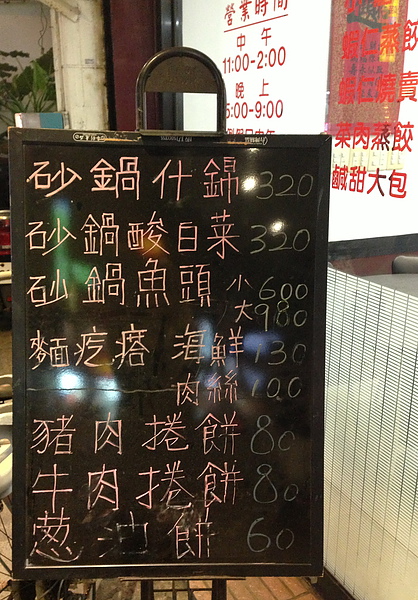 營業時間
中午
11:00-2:00
晚上
5:00-9:00
蝦仁蒸餃
蝦仁燒賣
菜肉蒸餃
鹹甜大包
砂鍋什錦 320
砂鍋酸白菜 320
砂鍋魚頭 小 600
大 980
麵疙瘩 海鮮 130
肉絲 100
豬肉捲餅 80
牛肉捲餅 80
葱油餅 60